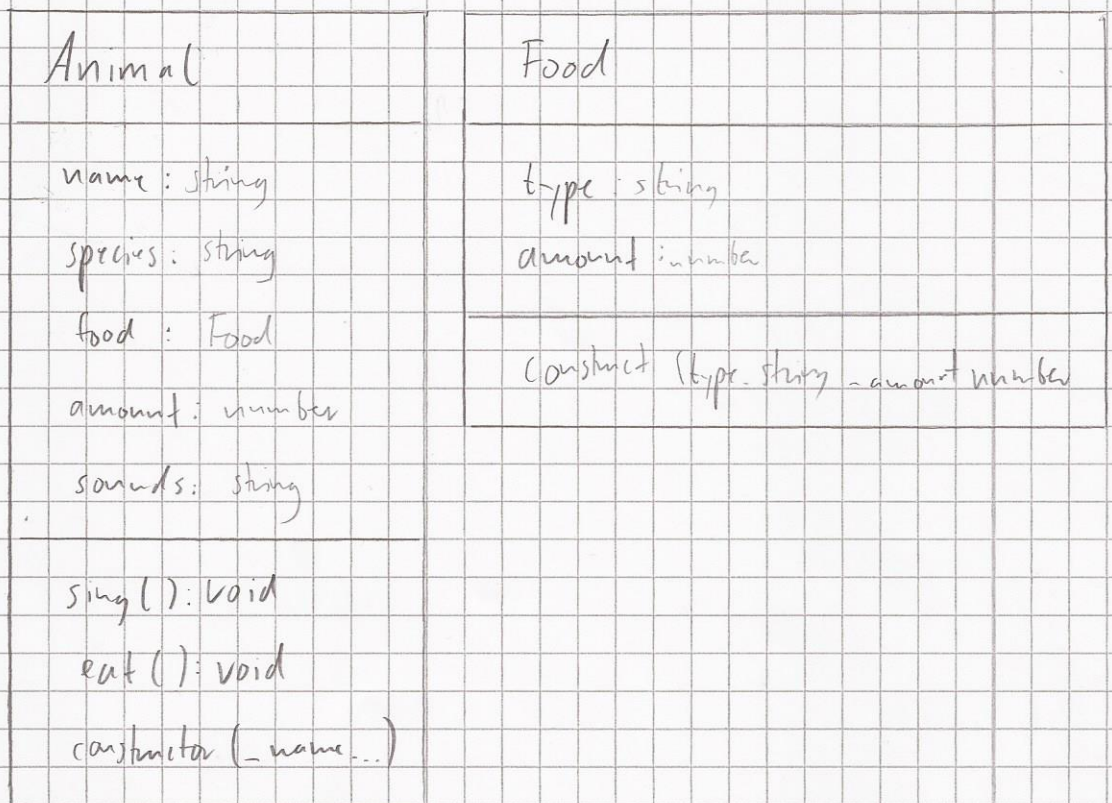 Animal
name : string
species : string
food : Food
amount : number
sounds : string
sing ( ) : void
eat ( ) : void
constructor (_name...)
Food
type : string
amount : number
construct (type. string _amount number